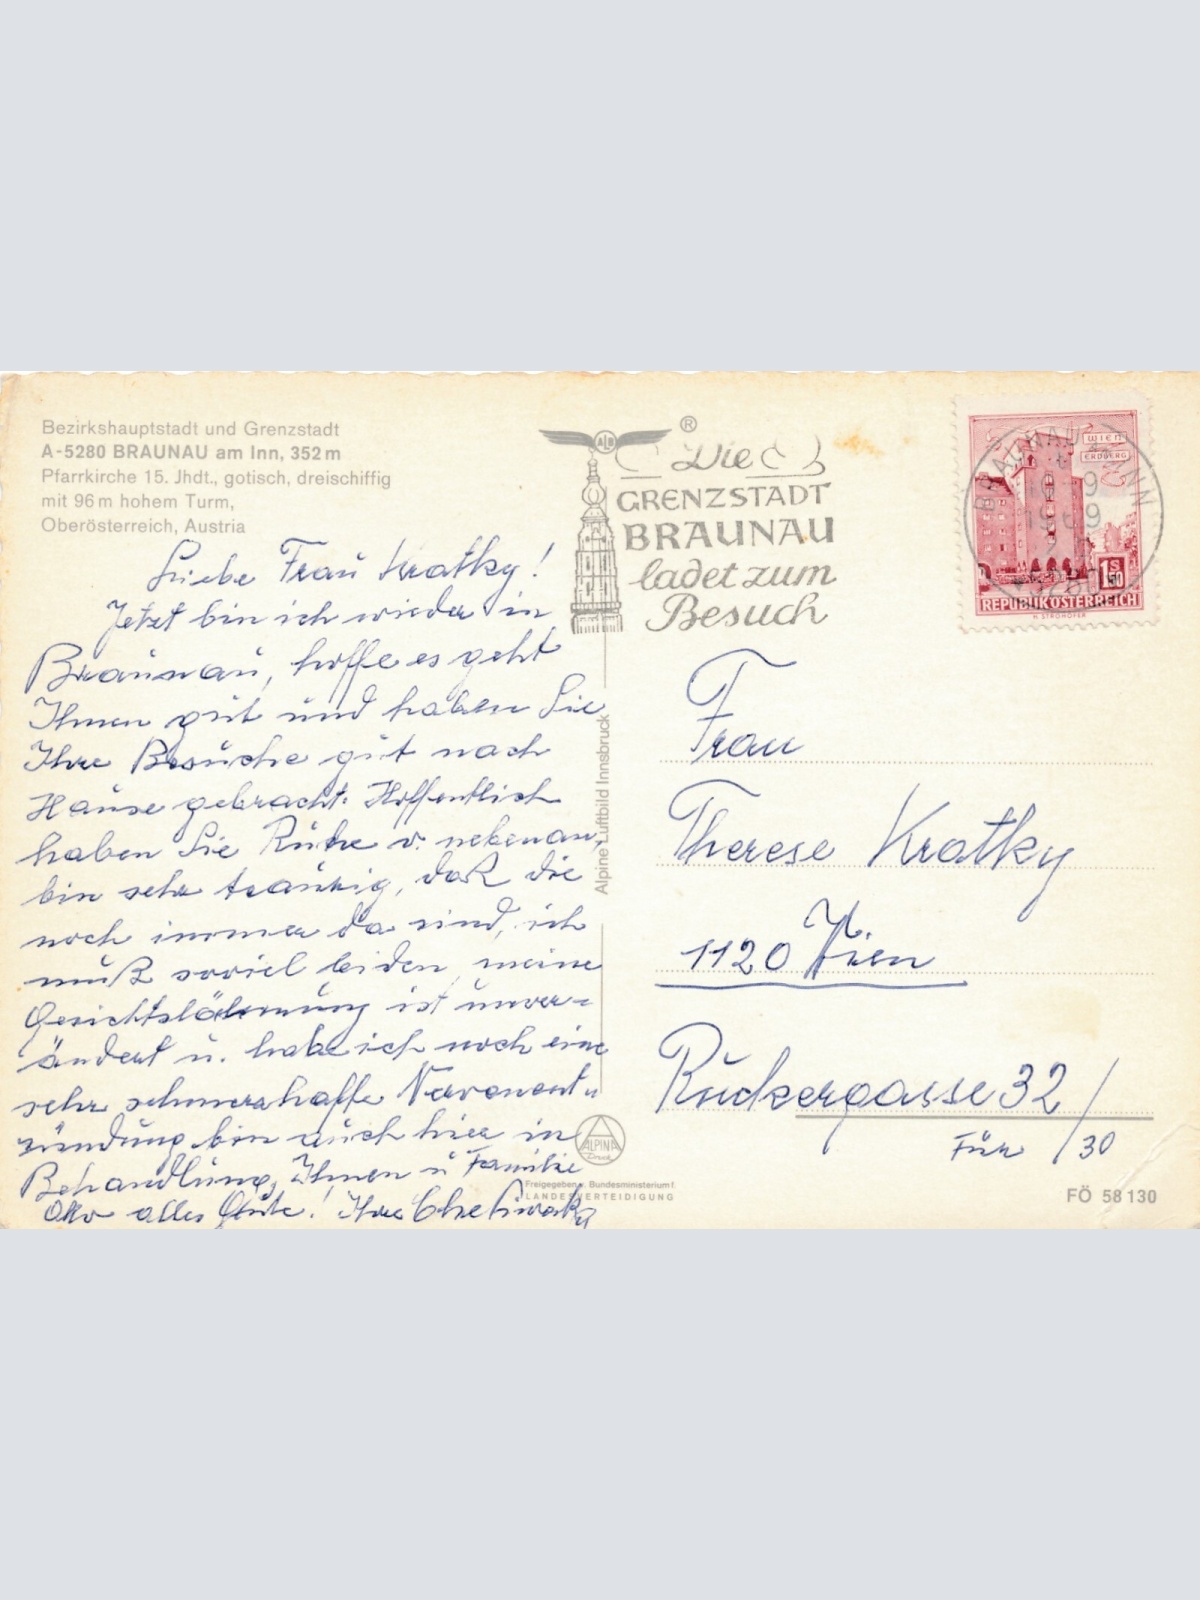 Bezirkshauptstadt und Grenzstadt
A-5280 BRAUNAU am Inn, 352 m
Pfarrkirche 15. Jhdt., gotisch, dreischiffig
mit 96 m hohem Turm,
Oberösterreich, Austria
Liebe Frau Kratky!
Jetzt bin ich wieder in
Braunau, hoffe es geht
Ihnen gut und haben Sie
Ihre Besuche gut nach
Hause gebracht. Hoffentlich
haben Sie Ruhe v. nebenan,
bin sehr traurig, daß die
noch immer da sind, ich
muß soviel leiden, meine
Gesichtslähmung ist unver-
ändert u. habe ich noch eine
sehr schmerzhafte Nervenent-
zündung bin auch hier in
Behandlung, Ihnen u Familie
Otto alles Gute! Ihre
®
Die
GRENZSTADT
BRAUNAU
ladet zum
Besuch
Alpine Luftbild Innsbruck
ALPINA
Druck
Freigegeben v. Bundesministerium f.
LANDESVERTEIDIGUNG
BRAUNAU AM INN
9
1969
5280
WIEN
ERDBERG
1 S 50
REPUBLIK ÖSTERREICH
H. STROHOFER
Frau
Therese Kratky
1120 Wien
Ruckergasse 32/
Tür /30
FÖ 58 130